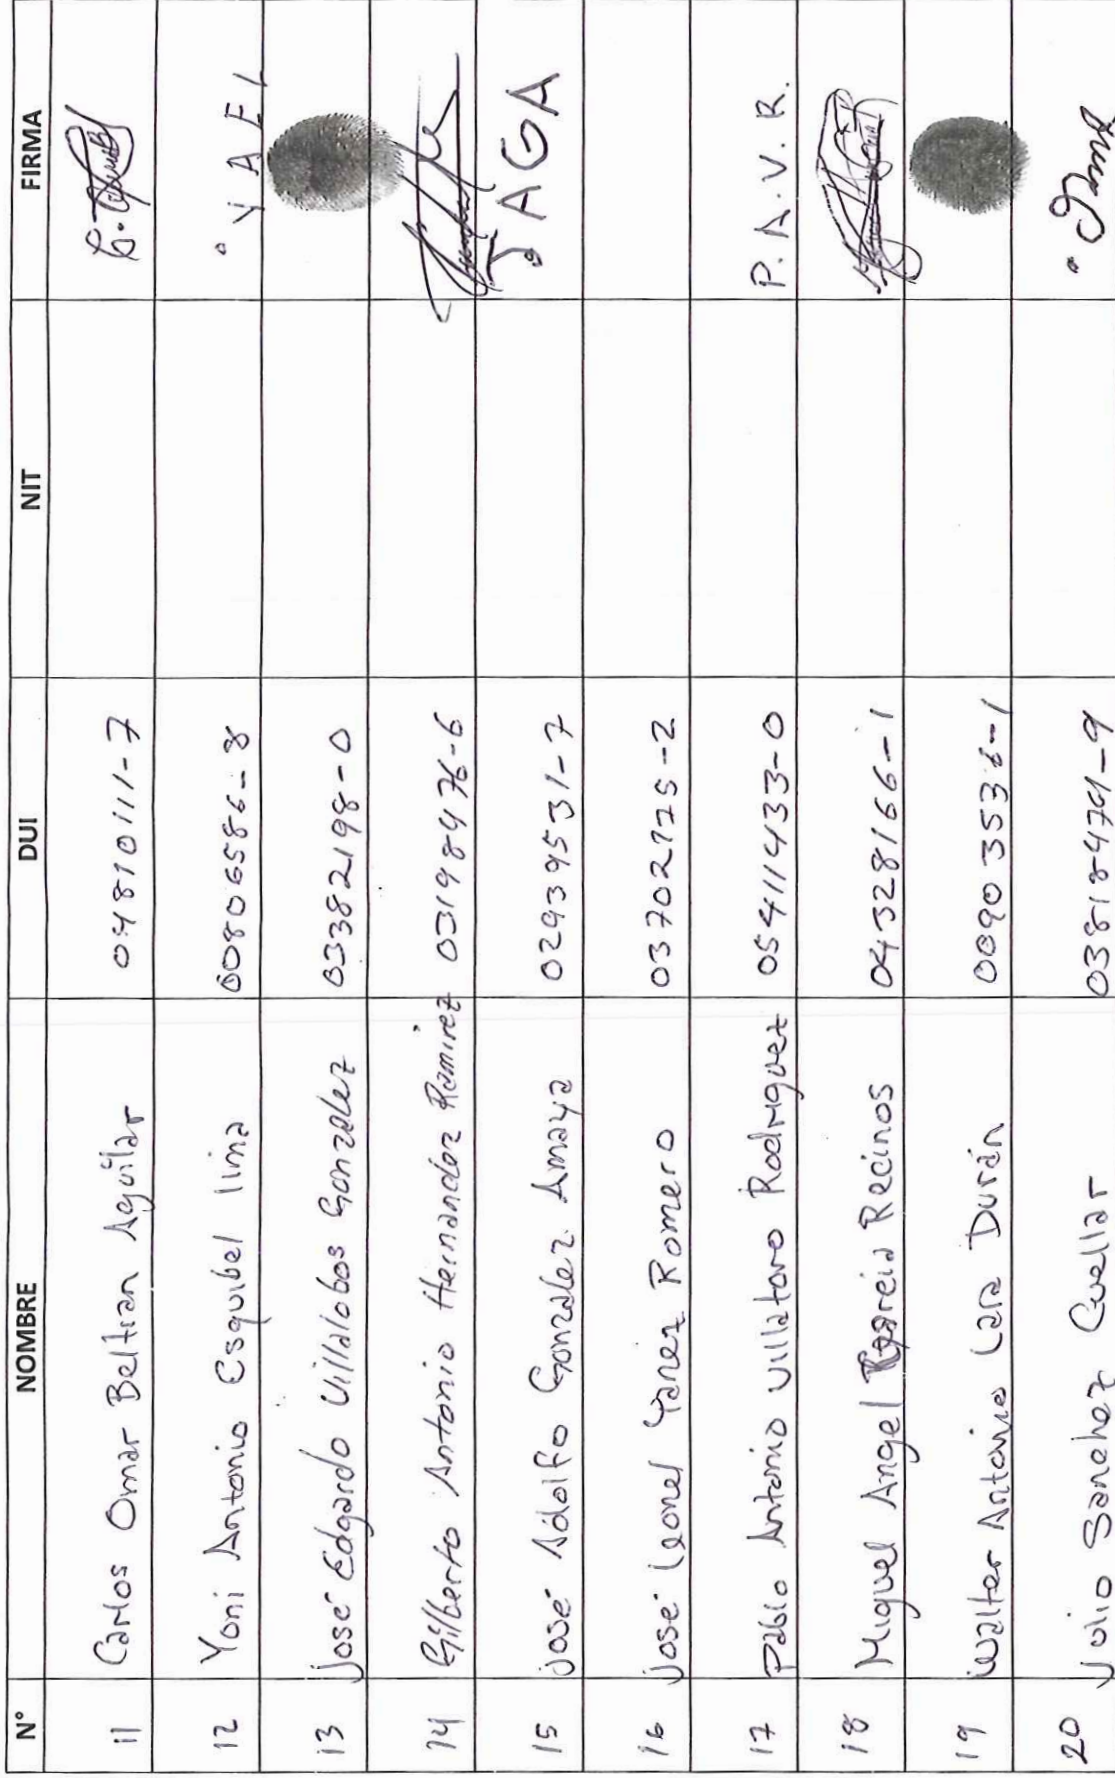 N° NOMBRE DUI NIT FIRMA
11 Carlos Omar Beltran Aguilar 04810111-7
12 Yoni Antonio Esquibel lima 00806586-8 YAEL
13 José Edgardo Villalobos Gonzalez 03382198-0
14 Gilberto Antonio Hernandez Ramirez 03198476-6
15 José Adolfo Gonzalez Amaya 02939531-7 JAGA
16 José Leonel Yanez Romero 03702775-2
17 Pablo Antonio Villatoro Rodriguez 05411433-0 P.A.V.R.
18 Miguel Angel Recinos 04328166-1
19 Walter Antonio Lara Durán
20 Julio Sanchez Cuellar